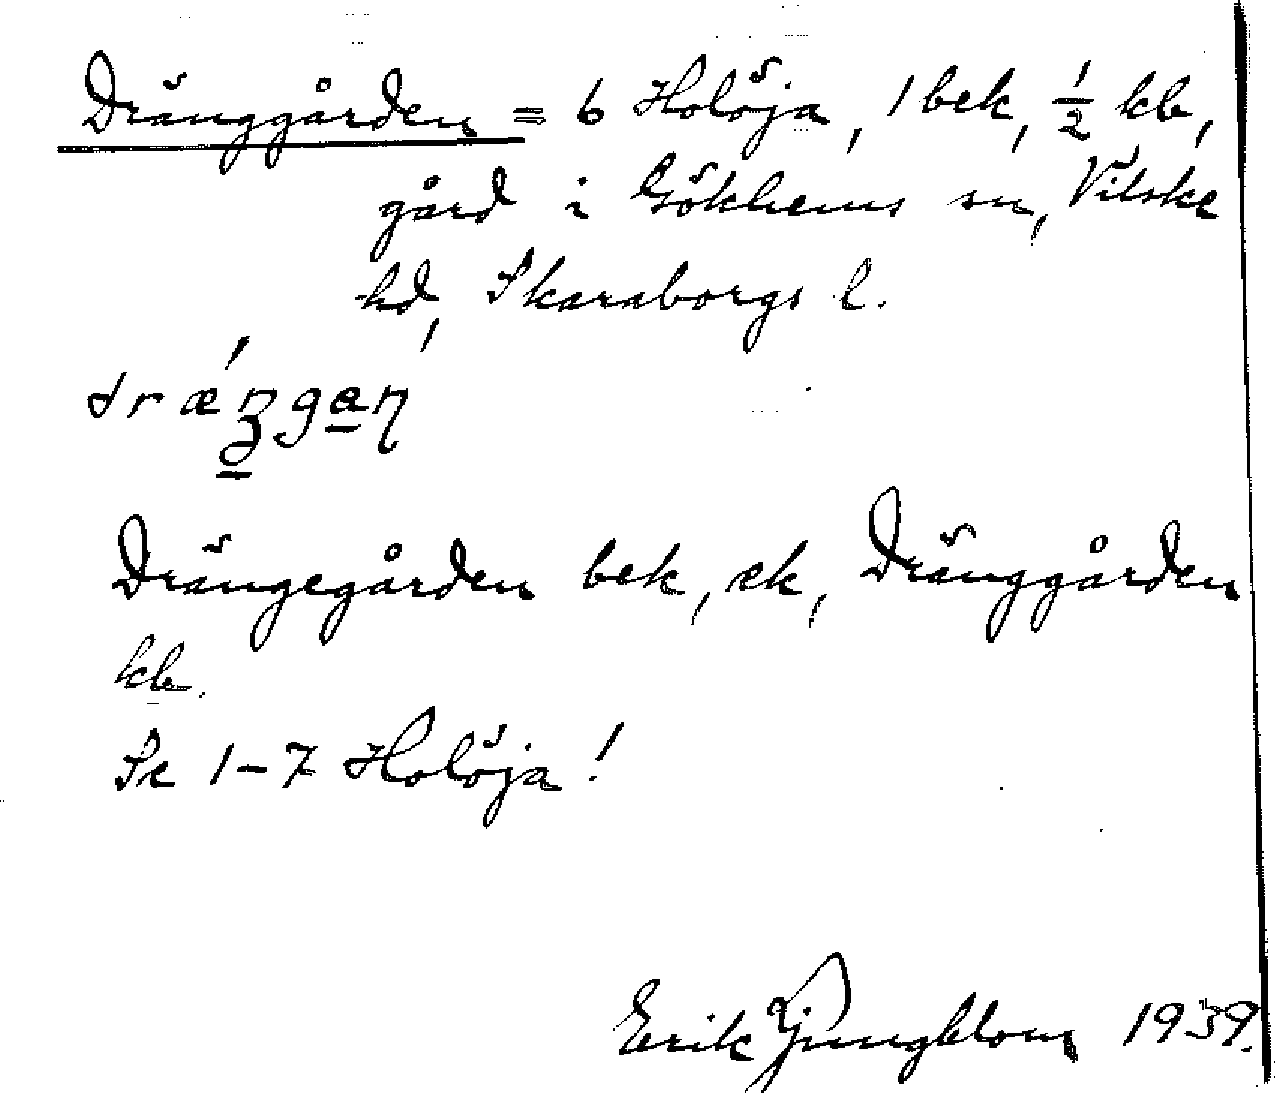 Dränggården = 6 Holöja, 1 bek, ½ kb,
gård i Gökhems sn, Vilske
hd, Skaraborgs l.
Drängegården bek, ek, Dränggården
kb.
Se 1-7 Holöja!
Erik Ljungblom 1939.